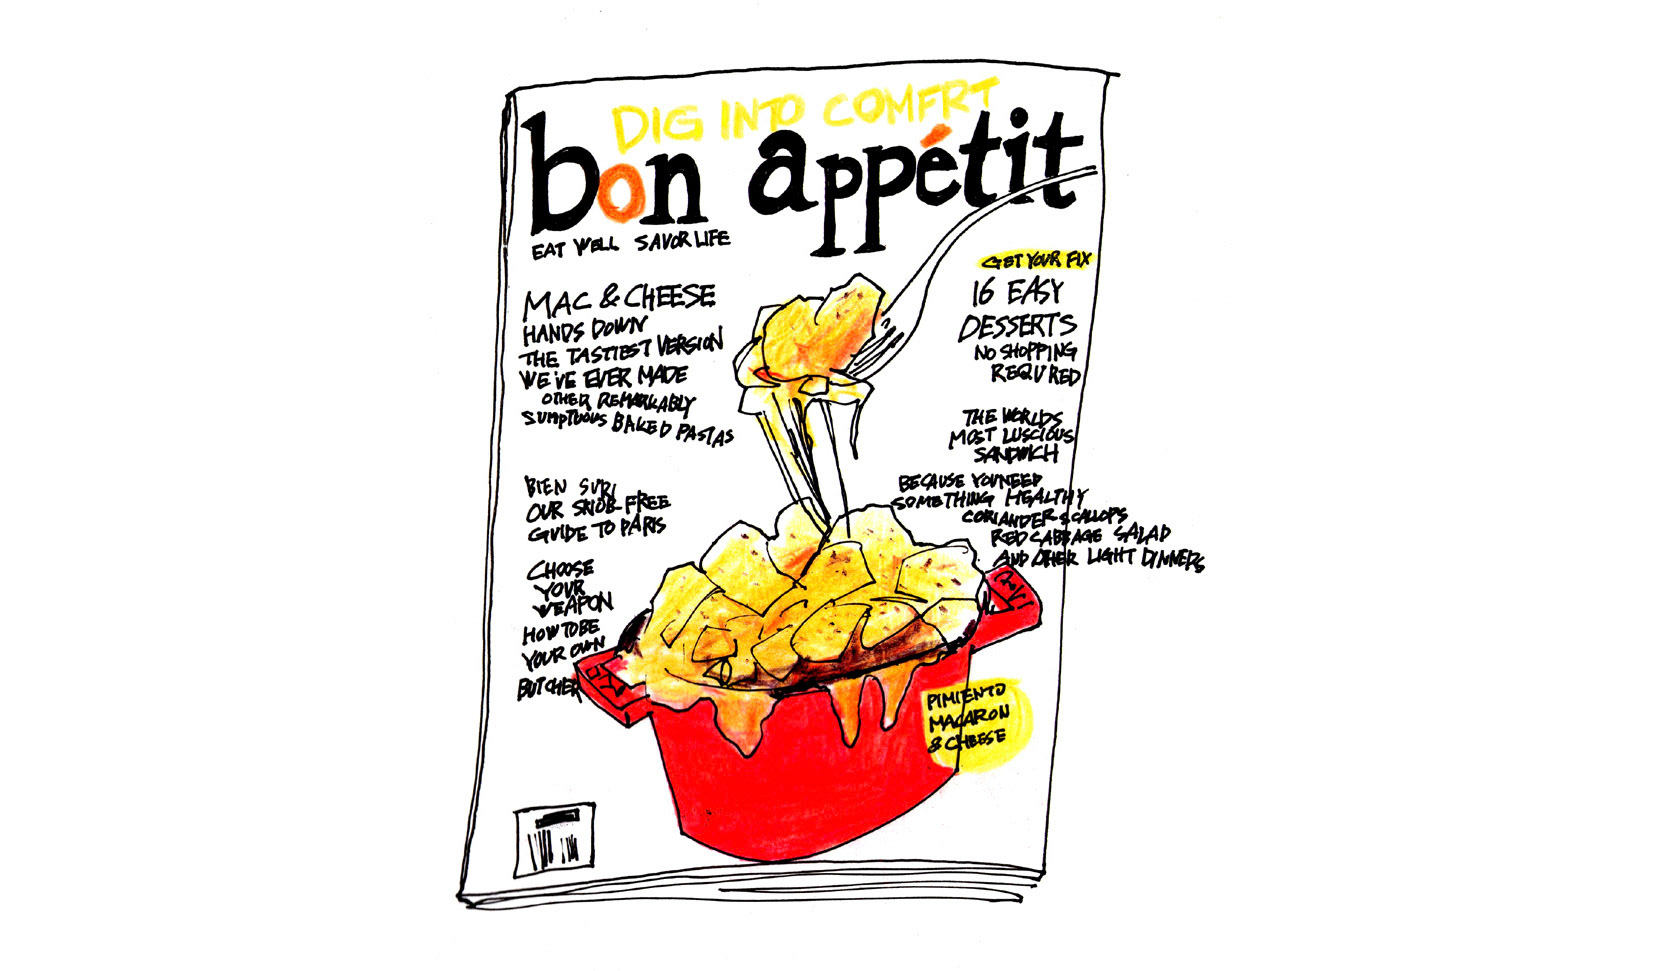 DIG INTO COMFRT
bon appétit
EAT WELL SAVOR LIFE
MAC & CHEESE
HANDS DOWN
THE TASTIEST VERSION
WE'VE EVER MADE
OTHER REMARKABLY
SUMPTUOUS BAKED PASTAS
BIEN SUR!
OUR SNOB FREE
GUIDE TO PARIS
CHOOSE
YOUR
WEAPON
HOW TO BE
YOUR OWN
BUTCHER
GET YOUR FIX
16 EASY
DESSERTS
NO SHOPPING
REQURED
THE WORLDS
MOST LUSCIOUS
SANDWICH
BECAUSE YOU NEED
SOMETHING HEALTHY
CORIANDER SCALLOPS
RED CABBAGE SALAD
AND OTHER LIGHT DINNERS
PIMIENTO
MACARON
& CHEESE